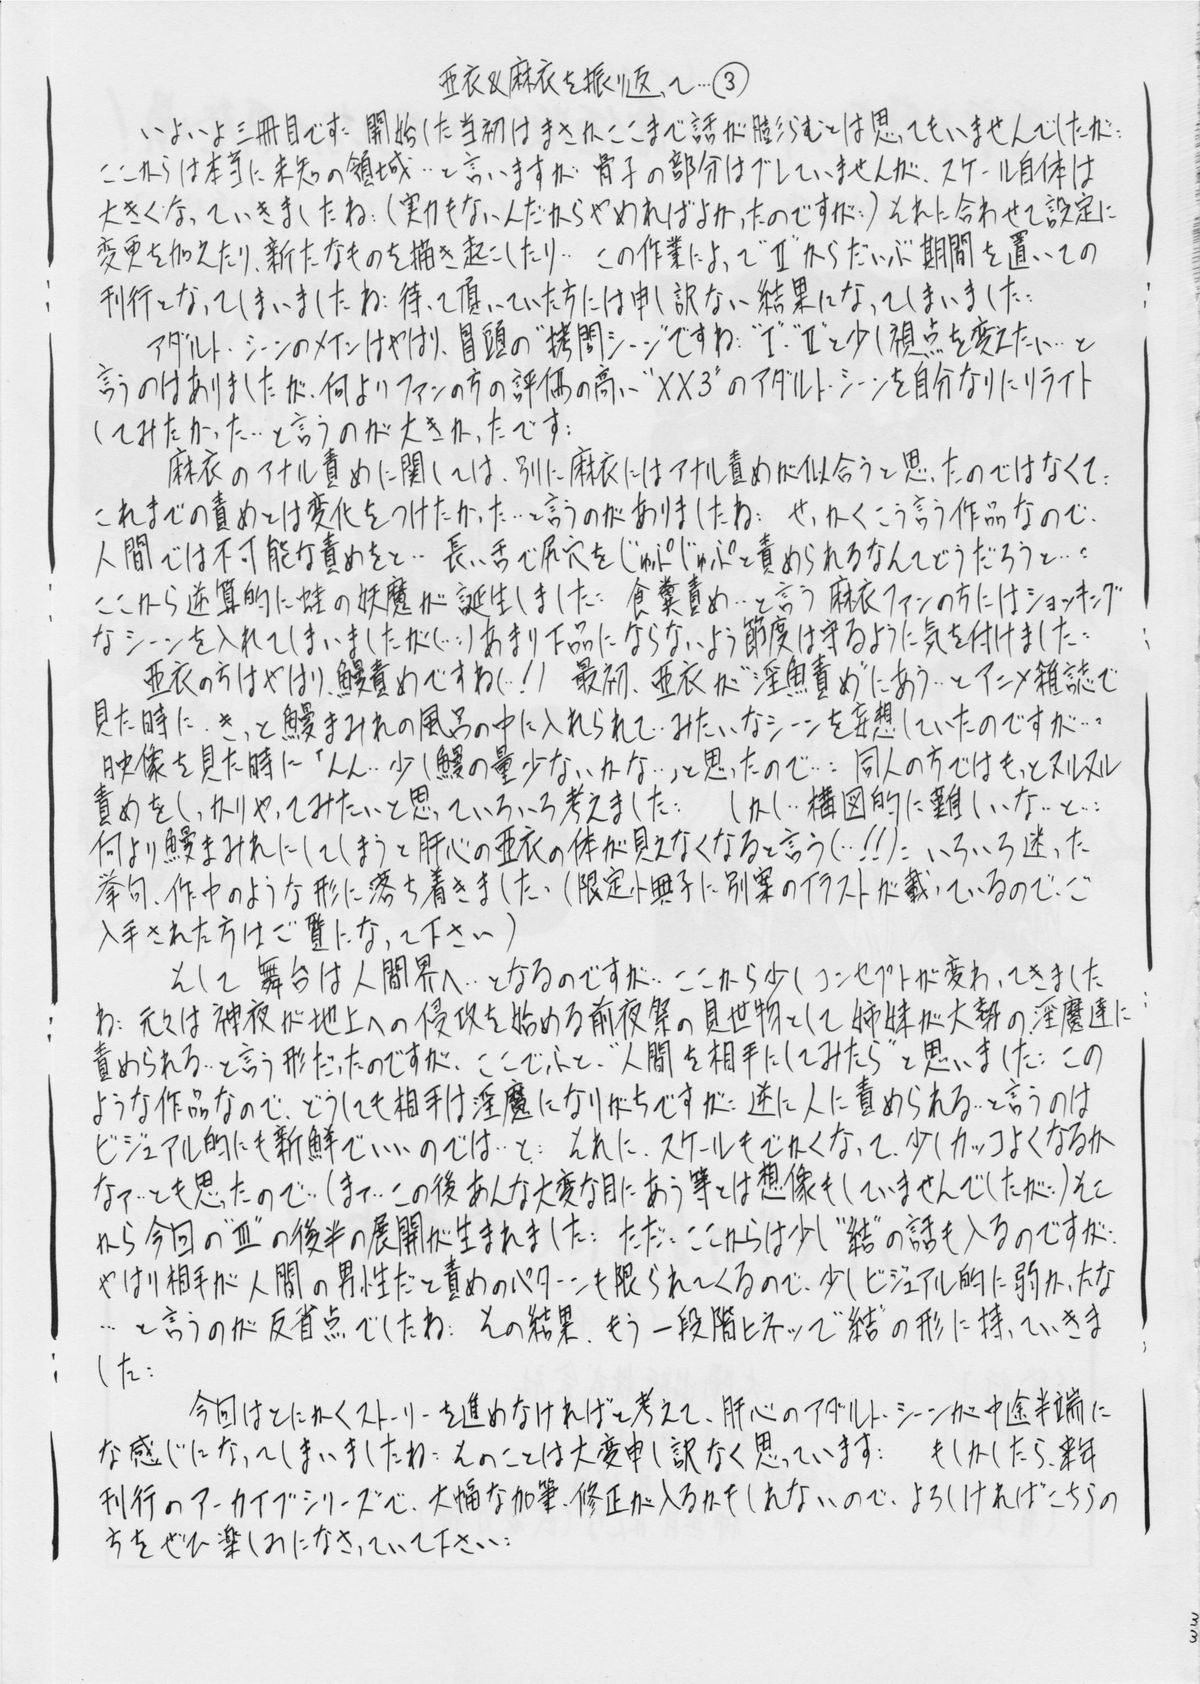 亜衣&麻衣を振り返って…③
いよいよ三冊目です… 開始した当初はまさかここまで話が膨らむとは思ってもいませんでしたが…
ここからは本当に未知の領域…と言いますが 骨子の部分はブレていませんが、スケール自体は
大きくなっていきましたね…(実力もないんだからやめればよかったのですが…)それに合わせて設定に
変更を加えたり、新たなものを描き起こしたり… この作業によって"Ⅱ"からだいぶ期間を置いての
刊行となってしまいましたね…待って頂いていた方には申し訳ない結果になってしまいました…
アダルト・シーンのメインはやはり、冒頭の"拷問シーン"ですね…"Ⅰ"・"Ⅱ"と少し視点を変えたい…と
言うのはありましたが、何よりファンの方の評価の高い"XX3"のアダルト・シーンを自分なりにリライト
してみたかった…と言うのが大きかったです…
麻衣のアナル責めに関しては、別に麻衣にはアナル責めが似合うと思ったのではなくて…
これまでの責めとは変化をつけたかった…と言うのがありましたね… せっかくこう言う作品なので、
人間では不可能な責めをと… 長い舌で尻穴をじゅぷじゅぷと責められるなんてどうだろうと…
ここから逆算的に蛙の妖魔が誕生しました… 食糞責め…と言う麻衣ファンの方にはショッキング
なシーンを入れてしまいましたが(…)あまり下品にならないよう節度は守るように気を付けました…
亜衣の方はやはり、鰻責めですね(…!) 最初、亜衣が"淫魚責め"にあう…とアニメ雑誌で
見た時に、きっと鰻まみれの風呂の中に入れられて…みたいなシーンを妄想していたのですが…
映像を見た時に「んん…少し鰻の量少ないかな…」と思ったので…同人の方ではもっとヌルヌル
責めをしっかりやってみたいと思っていろいろ考えました… しかし…構図的に難しいな…と…
何より鰻まみれにしてしまうと肝心の亜衣の体が見えなくなると言う(…!!)…いろいろ迷った
挙句、作中のような形に落ち着きました、(限定小冊子に別案のイラストが載っているので、ご
入手された方はご覧になって下さい)
そして 舞台は人間界へ…となるのですが…ここから少しコンセプトが変わってきました
ね…元々は神夜が地上への侵攻を始める前夜祭の見世物として姉妹が大勢の淫魔達に
責められる…と言う形だったのですが、ここでふと…"人間を相手にしてみたら"と思いました…この
ような作品なので、どうしても相手は淫魔になりがちですが…逆に人に責められる…と言うのは
ビジュアル的にも新鮮でいいのでは…と… それに、スケールもでかくなって、少しカッコよくなるか
なァ…とも思ったので…(まァ…この後あんな大変な目にあう等とは想像もしていませんでしたが…)そこ
から今回の"Ⅲ"の後半の展開が生まれました… ただ…ここからは少し"結"の話も入るのですが…
やはり相手が人間の男性だと責めのパターンも限られてくるので、少しビジュアル的に弱かったな
…と言うのが反省点でしたね… その結果、もう一段階ヒネッて"結"の形に持っていきま
した…
今回はとにかくストーリーを進めなければと考えて、肝心のアダルト・シーンが中途半端に
な感じになってしまいましたね…そのことは大変申し訳なく思っています… もしかしたら、来年
刊行のアーカイブシリーズで、大幅な加筆、修正が入るかもしれないので、よろしければこちらの
方をぜひ楽しみになさっていて下さい…
33